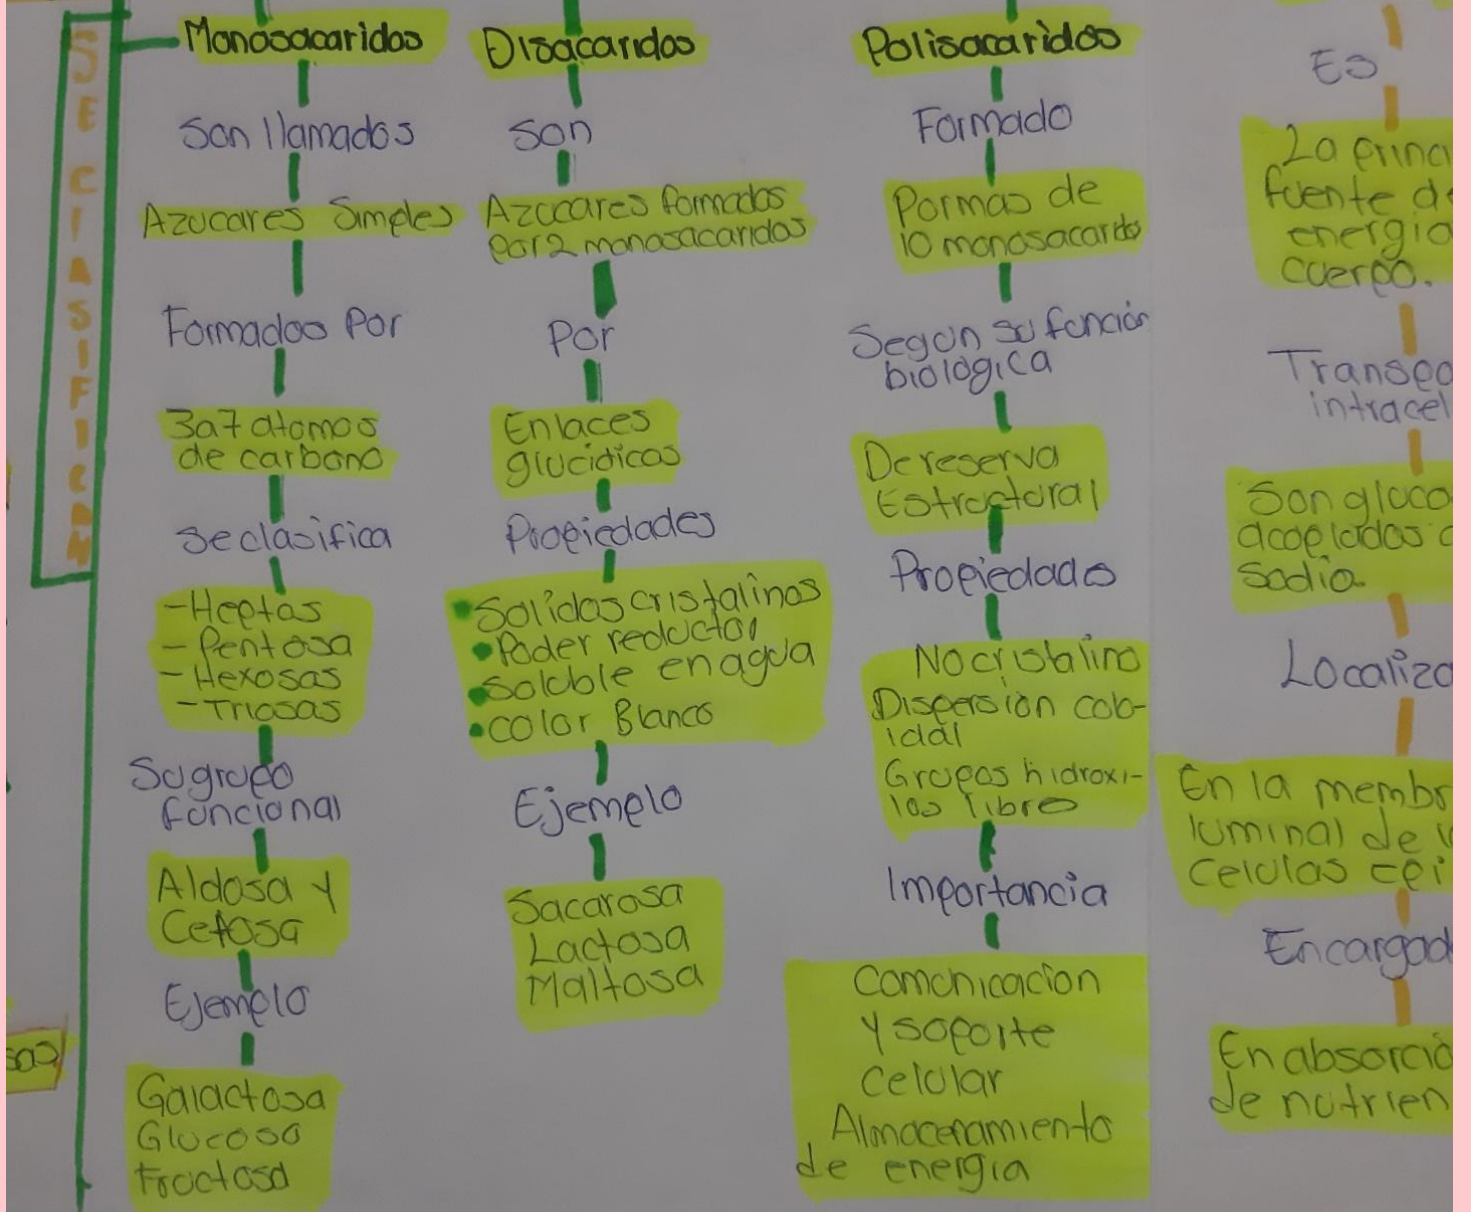 SE CIASIFICAN
Monosacaridos
Son llamados
Azucares Simples
Formados Por
3a7 atomos
de carbono
Se clasifica
-Heptas
- Pentosa
- Hexosas
- Triosas
Su grupo
funcional
Aldosa y
Cetosa
Ejemplo
Galactosa
Glucosa
Fructosa
Disacaridos
Son
Azucares formados
por 2 monosacaridos
Por
Enlaces
glucidicos
Propiedades
• Solidos cristalinos
• Poder reductor
• Soluble en agua
• color Blanco
Ejemplo
Sacarosa
Lactosa
Maltosa
Polisacaridos
Formado
Pormas de
10 monosacarido
Segun su función
biologica
De reserva
Estructural
Propiedads
No cristalino
Dispersion colo-
idal
Grupos hidroxi-
los libre
Importancia
Comunicacion
y soporte
Celular
Almacenamiento
de energia
Es
La princi
fuente de
energia
cuerpo.
Transpo
intracel
Son gluco
acoplados
Sodio.
Localiza
En la membr
luminal de
Celulas epi
Encargad
En absorció
de nutrien
sas